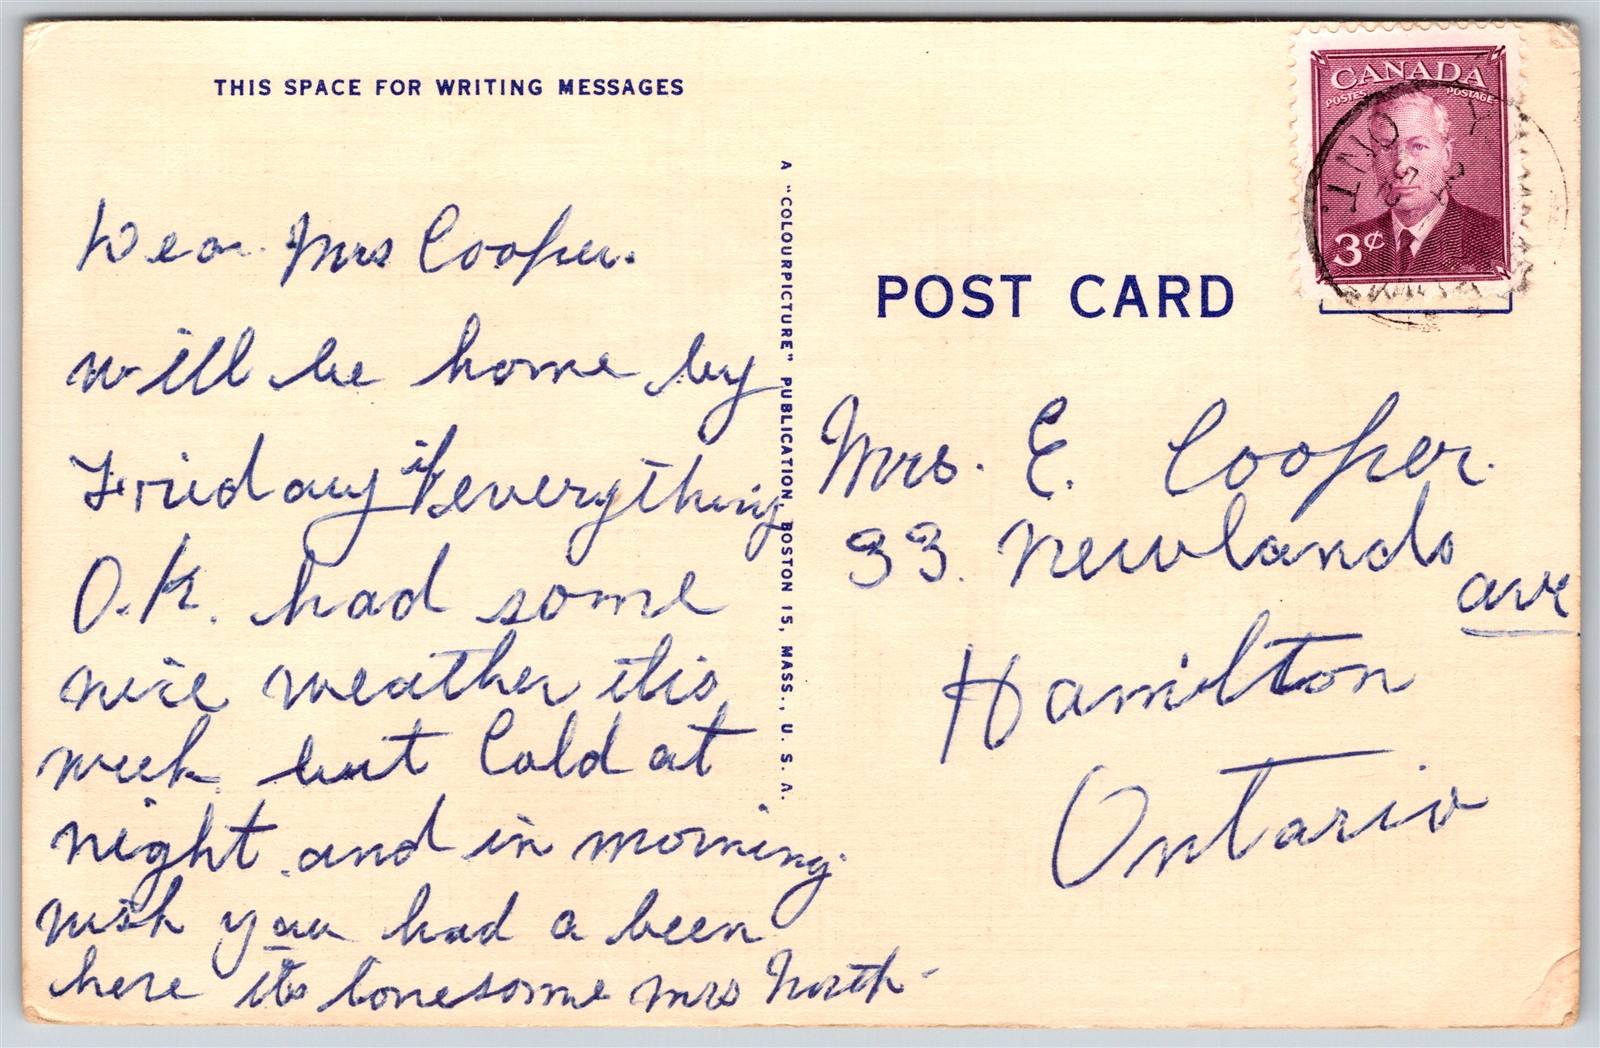 THIS SPACE FOR WRITING MESSAGES
Dear Mrs Cooper.
will be home by
Friday if everything
O.K. had some
nice weather this
week but Cold at
night and in morning
wish you had a been
here its lonesome Mrs North
A "COLOURPICTURE" PUBLICATION, BOSTON 15, MASS., U. S. A.
POST CARD
CANADA
POSTES POSTAGE
3¢
ONT.
52
Mrs. E. Cooper.
33. Newlands
ave
Hamilton
Ontario